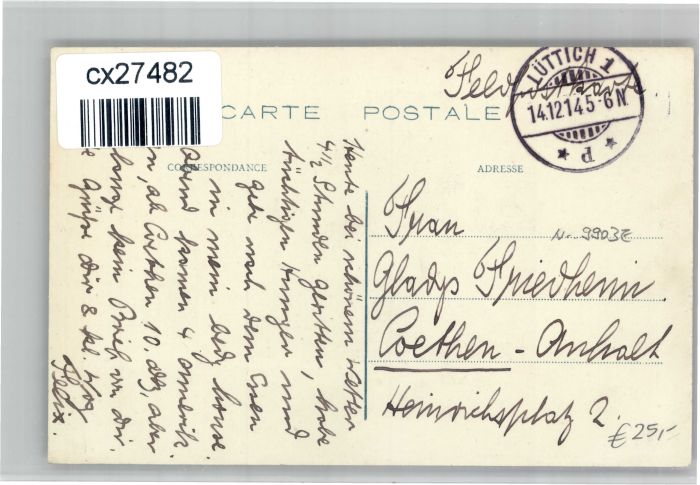 cx27482
CARTE POSTALE
Feldpostkarte.
LÜTTICH 1
14.12.14.5-6N.
d
CORRESPONDANCE
ADRESSE
Heute bei schönem Wetter
4 1/2 Stunden geritten, habe
tüchtigen Hunger und
gehe nach dem Essen
in mein
Abend kamen 4
ab Coethen 10. aber
lange kein Brief von dir.
Grüße dir &
Felix.
N. 9903Z
Frau
Gladys Friedheim
Coethen - Anhalt
Heinrichsplatz 2.
€ 25,-